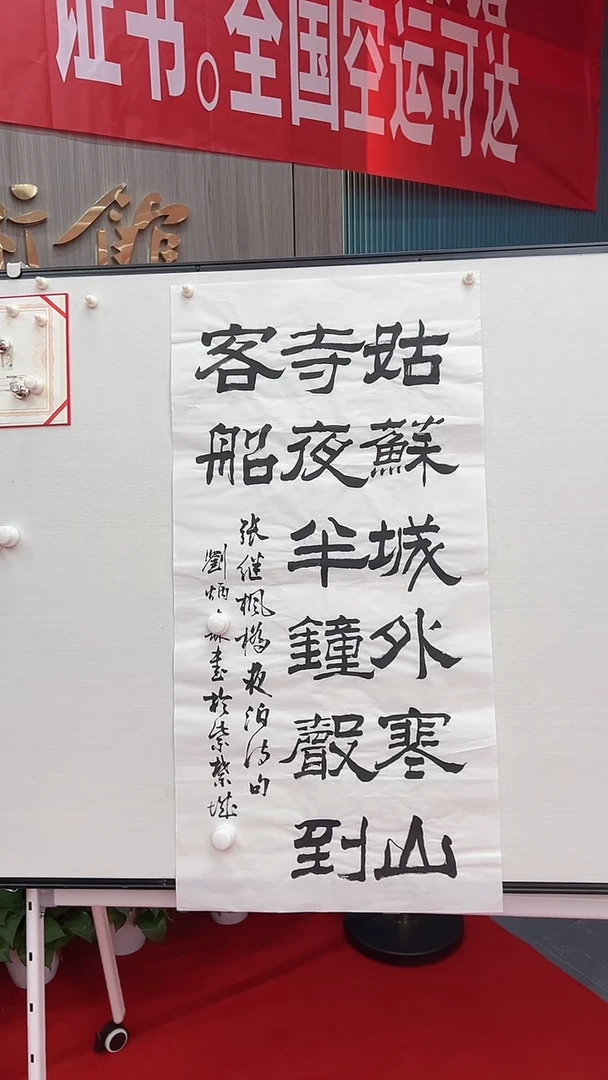 证书。全国空运可达
术馆
姑蘇城外寒山
寺夜半鐘聲到
客船
张继楓橋夜泊诗句
劉炳森書於紫禁城